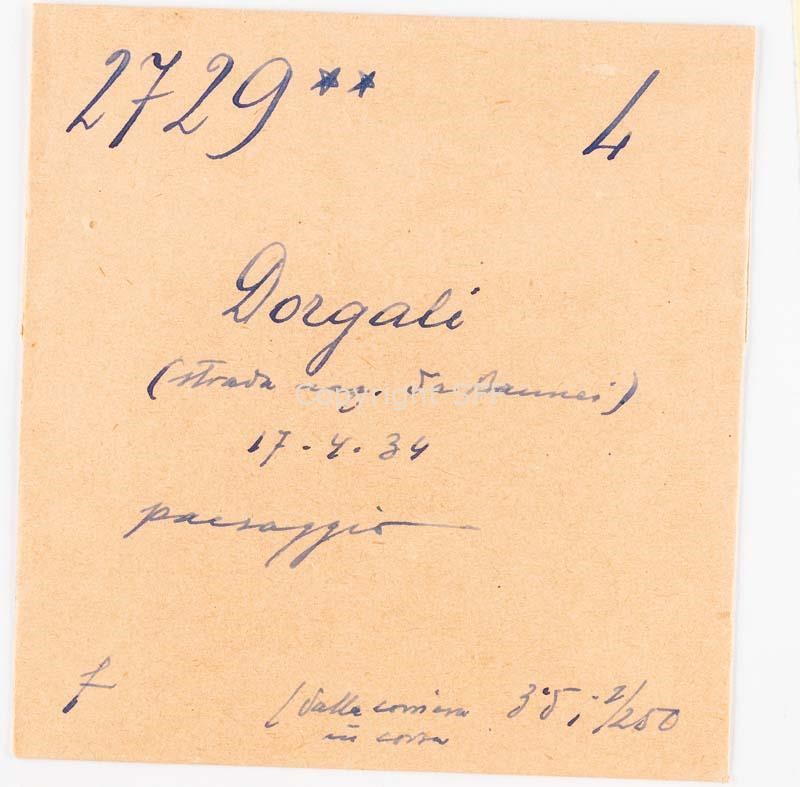 2729** 4
Dorgali
(strada naz. da Baunei)
17.4.34
paesaggio
f (dalla corriera 3'5; 1/250
in corsa
Copyright